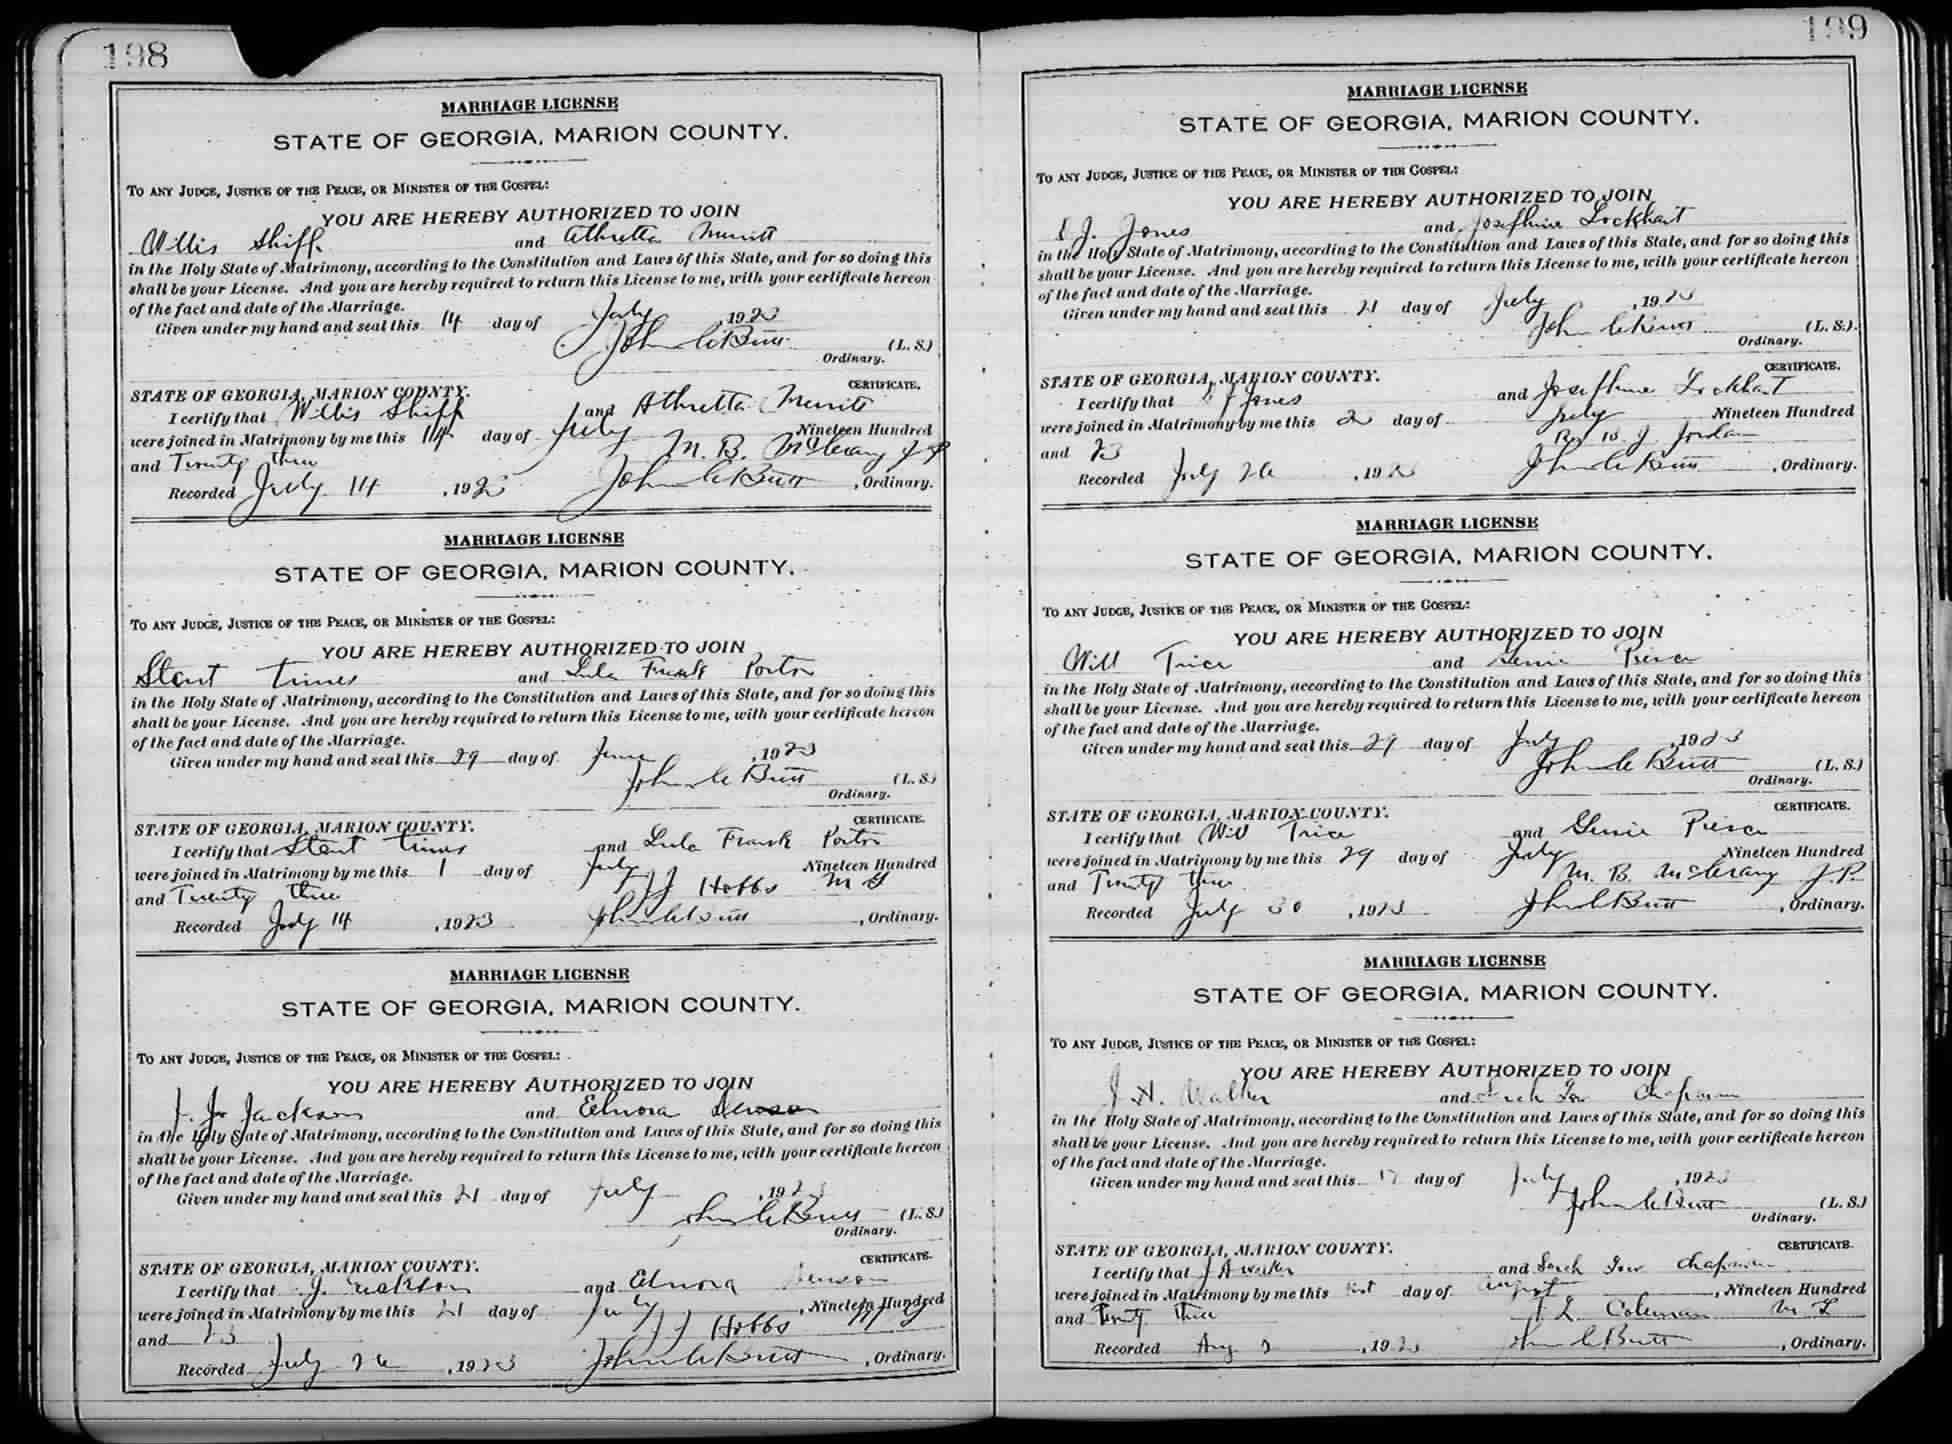 198
MARRIAGE LICENSE
STATE OF GEORGIA, MARION COUNTY.
TO ANY JUDGE, JUSTICE OF THE PEACE, OR MINISTER OF THE GOSPEL:
YOU ARE HEREBY AUTHORIZED TO JOIN
Willis Shiff and Athretta Merritt
in the Holy State of Matrimony, according to the Constitution and Laws of this State, and for so doing this
shall be your License. And you are hereby required to return this License to me, with your certificate hereon
of the fact and date of the Marriage.
Given under my hand and seal this 14 day of July, 1923
John C Butt (L. S.)
Ordinary.
CERTIFICATE.
STATE OF GEORGIA, MARION COUNTY.
I certify that Willis Shiff and Athretta Merritt
were joined in Matrimony by me this 14 day of July Nineteen Hundred
and Twenty three M. B. McCrary J P
Recorded July 14, 1923 John C Butt, Ordinary.
MARRIAGE LICENSE
STATE OF GEORGIA, MARION COUNTY.
TO ANY JUDGE, JUSTICE OF THE PEACE, OR MINISTER OF THE GOSPEL:
YOU ARE HEREBY AUTHORIZED TO JOIN
and Lula Frank Porter
in the Holy State of Matrimony, according to the Constitution and Laws of this State, and for so doing this
shall be your License. And you are hereby required to return this License to me, with your certificate hereon
of the fact and date of the Marriage.
Given under my hand and seal this 29 day of June, 1923
John C Butt (L. S.)
Ordinary.
CERTIFICATE.
STATE OF GEORGIA, MARION COUNTY.
I certify that and Lula Frank Porter
were joined in Matrimony by me this 1 day of July Nineteen Hundred
and Twenty three J J Hobbs M G
Recorded July 14, 1923 John C Butt, Ordinary.
MARRIAGE LICENSE
STATE OF GEORGIA, MARION COUNTY.
TO ANY JUDGE, JUSTICE OF THE PEACE, OR MINISTER OF THE GOSPEL:
YOU ARE HEREBY AUTHORIZED TO JOIN
Jackson and Elnora
in the Holy State of Matrimony, according to the Constitution and Laws of this State, and for so doing this
shall be your License. And you are hereby required to return this License to me, with your certificate hereon
of the fact and date of the Marriage.
Given under my hand and seal this 21 day of July, 1923
John C Butt (L. S.)
Ordinary.
CERTIFICATE.
STATE OF GEORGIA, MARION COUNTY.
I certify that J. Jackson and Elnora
were joined in Matrimony by me this 21 day of July, Nineteen Hundred
and 23 J J Hobbs
Recorded July 26, 1923 John C Butt, Ordinary.
199
MARRIAGE LICENSE
STATE OF GEORGIA, MARION COUNTY.
TO ANY JUDGE, JUSTICE OF THE PEACE, OR MINISTER OF THE GOSPEL:
YOU ARE HEREBY AUTHORIZED TO JOIN
J. Jones and Josephine Lockhart
in the Holy State of Matrimony, according to the Constitution and Laws of this State, and for so doing this
shall be your License. And you are hereby required to return this License to me, with your certificate hereon
of the fact and date of the Marriage.
Given under my hand and seal this 21 day of July, 1923
John C Butt (L. S.)
Ordinary.
CERTIFICATE.
STATE OF GEORGIA, MARION COUNTY.
I certify that J Jones and Josephine Lockhart
were joined in Matrimony by me this 2 day of July Nineteen Hundred
and 23 J Jordan
Recorded July 26, 1923 John C Butt, Ordinary.
MARRIAGE LICENSE
STATE OF GEORGIA, MARION COUNTY.
TO ANY JUDGE, JUSTICE OF THE PEACE, OR MINISTER OF THE GOSPEL:
YOU ARE HEREBY AUTHORIZED TO JOIN
Will Trice and Genie Pierce
in the Holy State of Matrimony, according to the Constitution and Laws of this State, and for so doing this
shall be your License. And you are hereby required to return this License to me, with your certificate hereon
of the fact and date of the Marriage.
Given under my hand and seal this 29 day of July, 1923
John C Butt (L. S.)
Ordinary.
CERTIFICATE.
STATE OF GEORGIA, MARION COUNTY.
I certify that Will Trice and Genie Pierce
were joined in Matrimony by me this 29 day of July Nineteen Hundred
and Twenty three M. B. McCrary J. P.
Recorded July 30, 1923 John C Butt, Ordinary.
MARRIAGE LICENSE
STATE OF GEORGIA, MARION COUNTY.
TO ANY JUDGE, JUSTICE OF THE PEACE, OR MINISTER OF THE GOSPEL:
YOU ARE HEREBY AUTHORIZED TO JOIN
J. H. Walker and Chapman
in the Holy State of Matrimony, according to the Constitution and Laws of this State, and for so doing this
shall be your License. And you are hereby required to return this License to me, with your certificate hereon
of the fact and date of the Marriage.
Given under my hand and seal this day of July, 1923
John C Butt (L. S.)
Ordinary.
CERTIFICATE.
STATE OF GEORGIA, MARION COUNTY.
I certify that J H Walker and Chapman
were joined in Matrimony by me this day of August, Nineteen Hundred
and Twenty three Coleman
Recorded Aug, 1923 John C Butt, Ordinary.